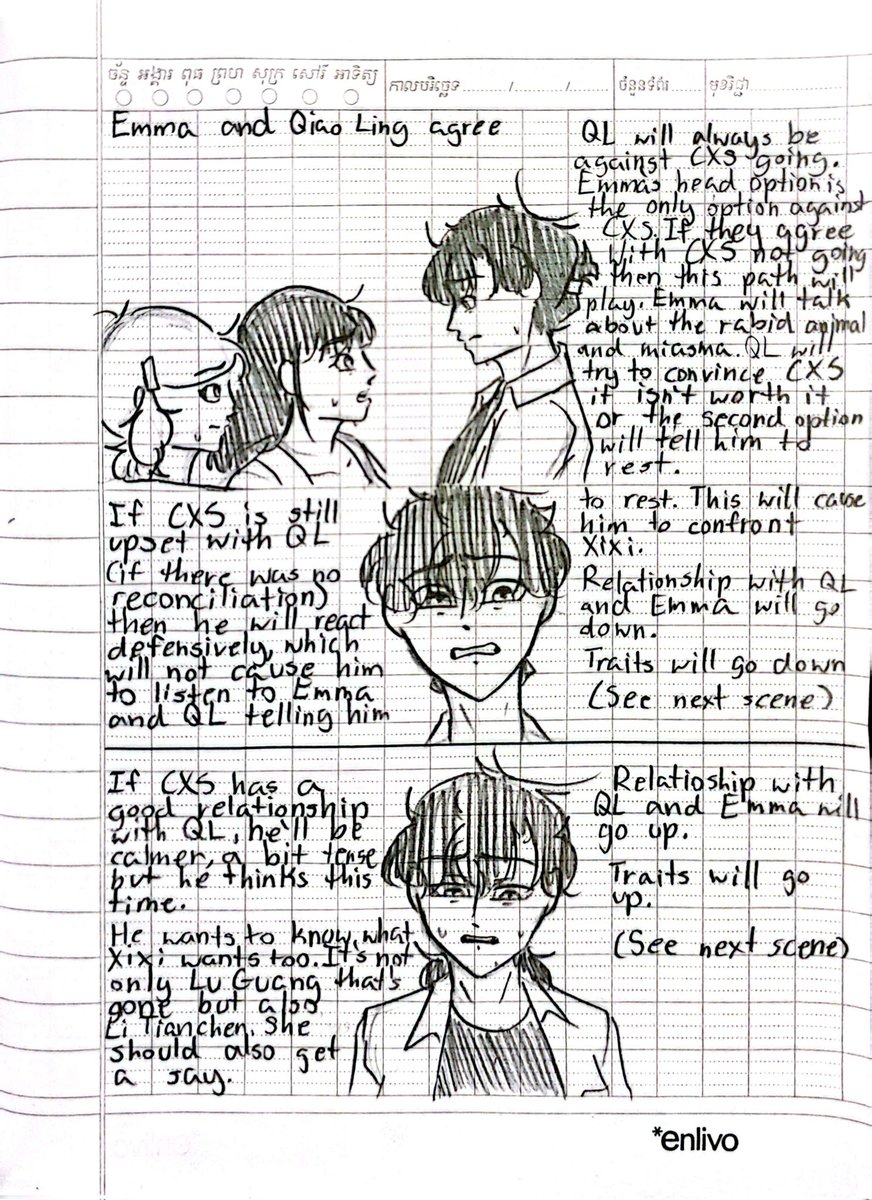 ច័ន្ទ អង្គារ ពុធ ព្រហ សុក្រ សៅរ៍ អាទិត្យ
កាលបរិច្ឆេទ ........../........../..........
ចំនួនទំព័រ ..........
មុខវិជ្ជា ..........
Emma and Qiao Ling agree
QL will always be
against CXS going.
Emmas head option is
the only option against
CXS. If they agree
with CXS not going
then this path will
play. Emma will talk
about the rabid animal
and miasma. QL will
try to convince CXS
it isn't worth it
or the second option
will tell him to
rest.
If CXS is still
upset with QL
(if there was no
reconciliation)
then he will react
defensively, which
will not cause him
to listen to Emma
and QL telling him
to rest. This will cause
him to confront
Xixi.
Relationship with QL
and Emma will go
down.
Traits will go down
(See next scene)
If CXS has a
good relationship
with QL, he'll be
calmer, a bit tense
but he thinks this
time.
He wants to know what
Xixi wants too. It's not
only Lu Guang that's
gone but also
Li Tianchen. She
should also get
a say.
Relatioship with
QL and Emma will
go up.
Traits will go
up.
(See next scene)
*enlivo